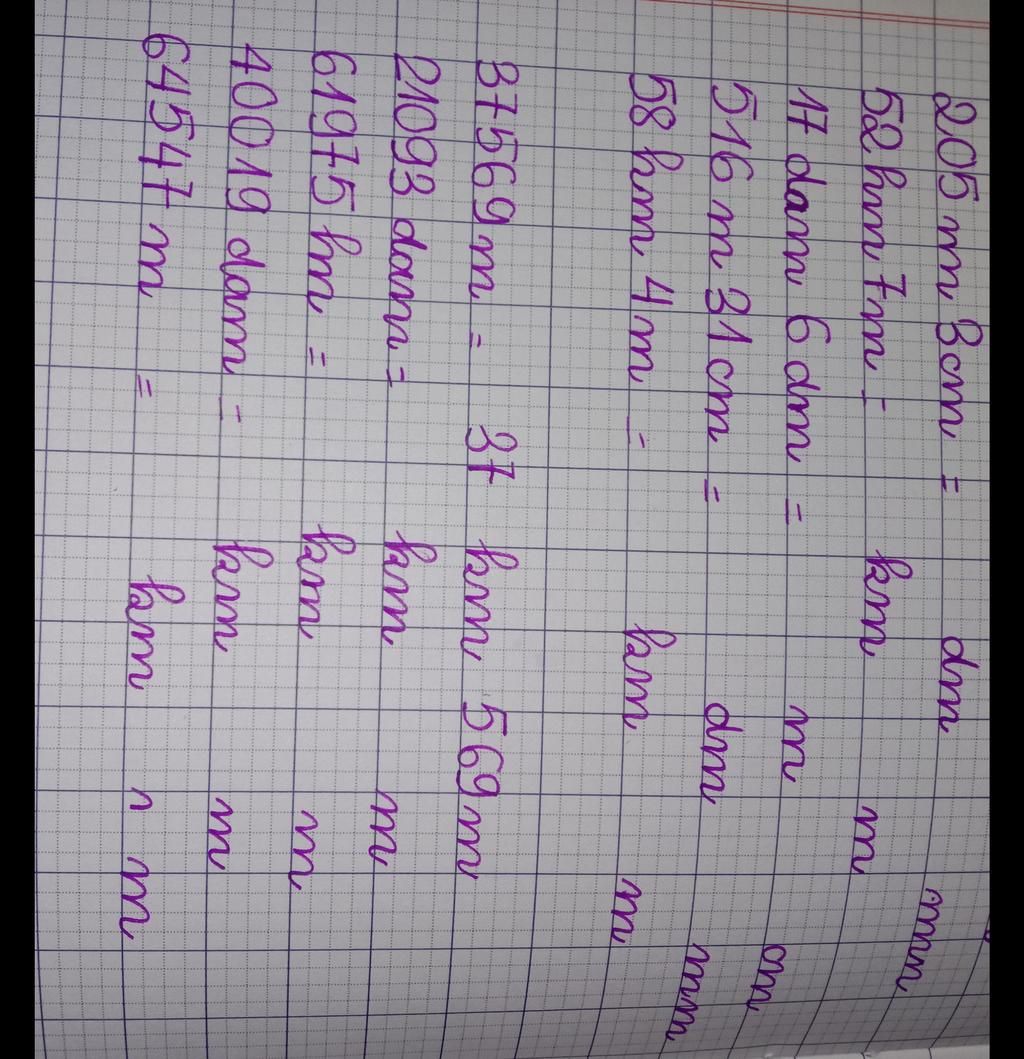 205 m 3 cm = dm mm
52 hm 7 m = km m
17 dam 6 dm = m cm
516 m 31 cm = dm mm
58 hm 4 m = km m
37569 m = 37 km 569 m
21093 dam = km m
61975 hm = km m
40019 dam = km m
64547 m = km m